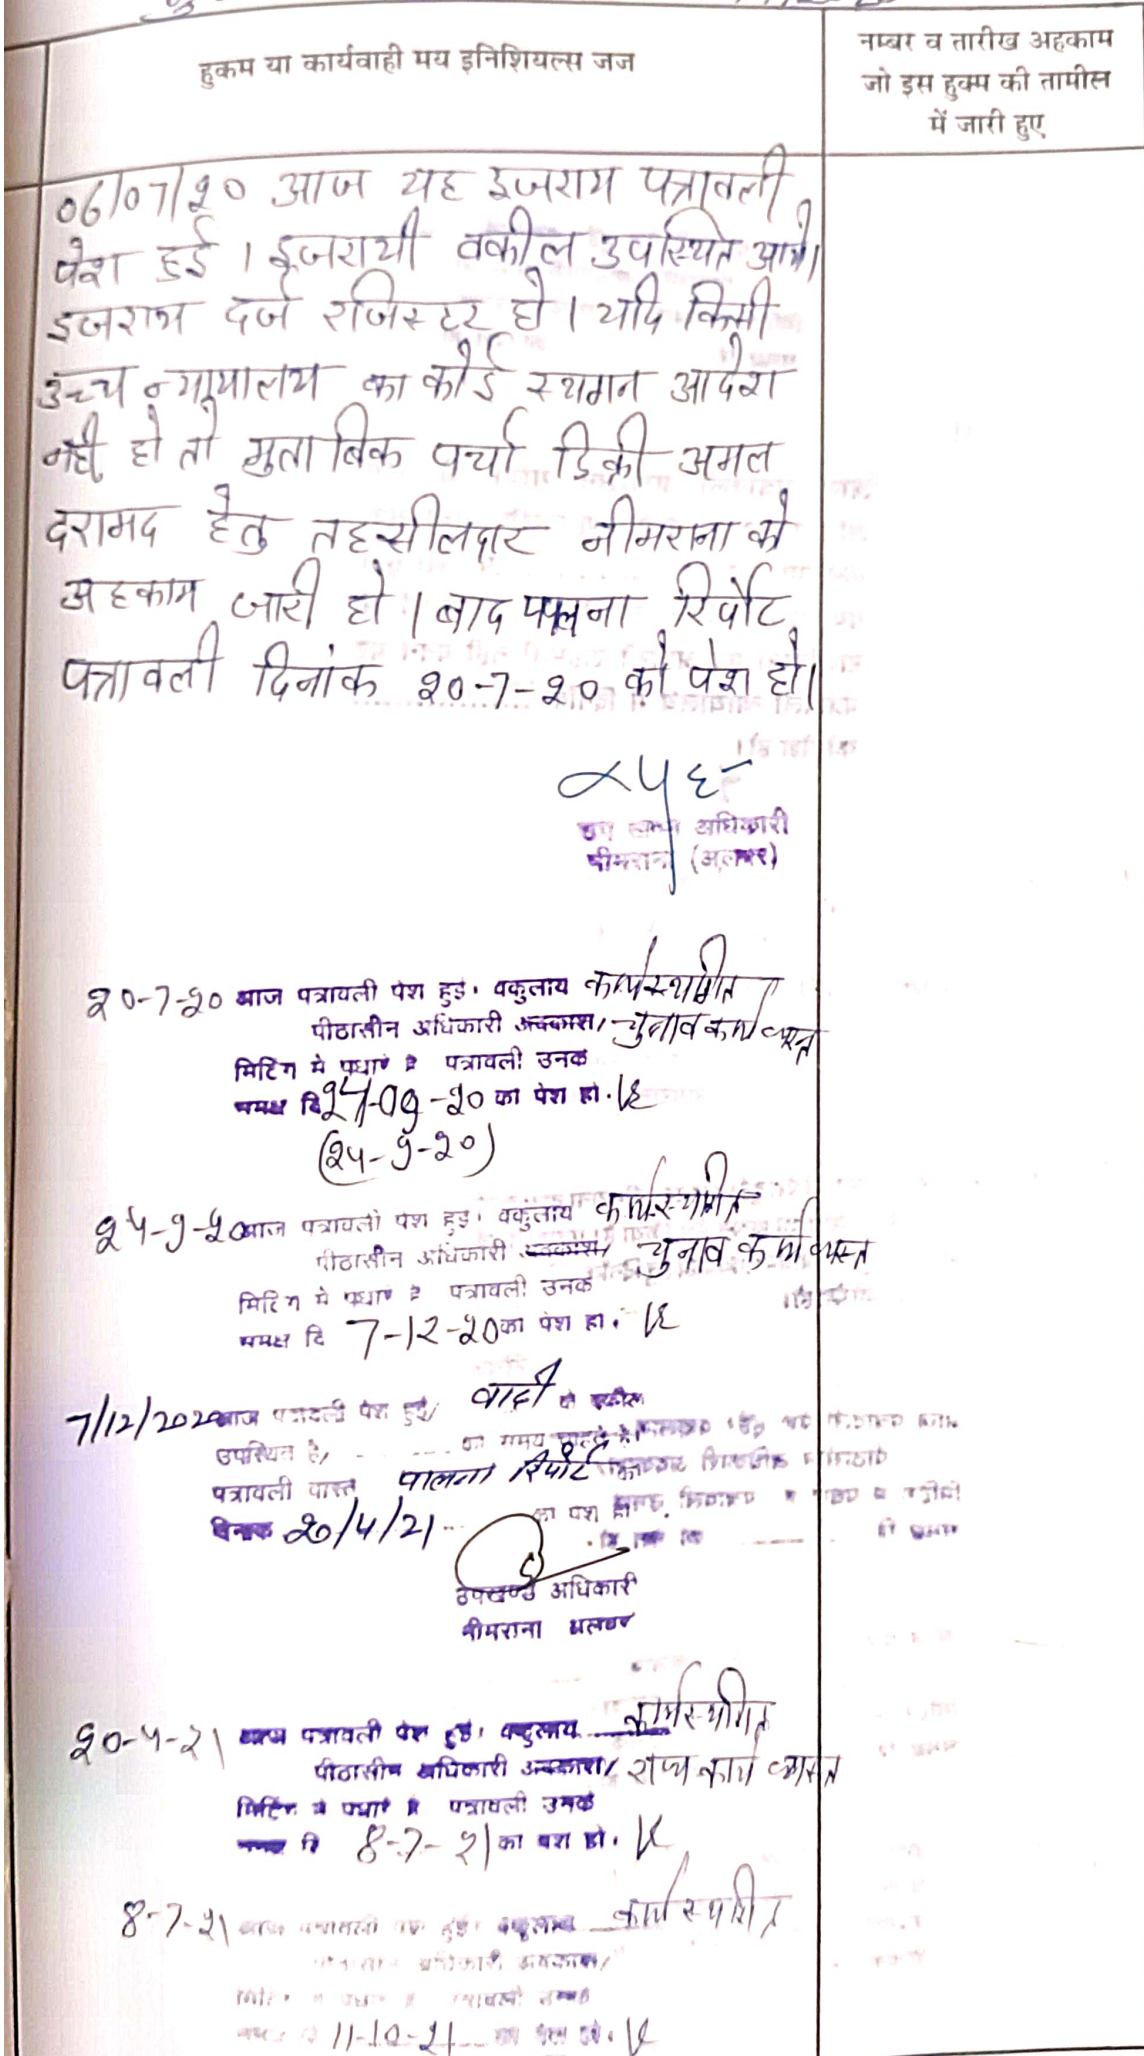 हुकम या कार्यवाही मय इनिशियल्स जज
नम्बर व तारीख अहकाम
जो इस हुक्म की तामील
में जारी हुए
06/07/20 आज यह इजराय पत्रावली
पेश हुई। इजरायी वकील उपस्थित आये।
इजराय दर्ज रजिस्टर हो। यदि किसी
उच्च न्यायालय का कोई स्थगन आदेश
नही हो तो मुताबिक पर्चा डिक्री अमल
दरामद हेतु तहसीलदार नीमराना को
अहकाम जारी हो। बाद पालना रिर्पोट
पत्रावली दिनांक 20-7-20 को पेश हो।
उप खण्ड अधिकारी
नीमराना (अलवर)
20-7-20 आज पत्रावली पेश हुई। वकुलाय कार्यस्थगित
पीठासीन अधिकारी अवकाश/ चुनाव कार्य व्यस्त
मिटिंग मे पधारे है पत्रावली उनके
समक्ष दि 24-09-20 को पेश हो।
(24-9-20)
24-9-20 आज पत्रावली पेश हुई। वकुलाय कार्यस्थगित
पीठासीन अधिकारी अवकाश/ चुनाव कार्य व्यस्त
मिटिंग मे पधारे है पत्रावली उनके
समक्ष दि 7-12-20 को पेश हो।
7/12/2020 आज पत्रावली पेश हुई/ वादी के वकील
उपस्थित है, का समय चाहते है।
पत्रावली वास्ते पालना रिपोर्ट
दिनांक 20/4/21 को पेश हो
उपखण्ड अधिकारी
नीमराना अलवर
20-4-21 आज पत्रावली पेश हुई। वकुलाय कार्यस्थगित
पीठासीन अधिकारी अवकाश/ राज्य कार्य व्यस्त
मिटिंग मे पधारे है पत्रावली उनके
समक्ष दि 8-7-21 को पेश हो।
8-7-21 आज पत्रावली पेश हुई। वकुलाय कार्य स्थगित
अधिकारी अवकाश/
पत्रावली उनके
11-10-21 को पेश हो।